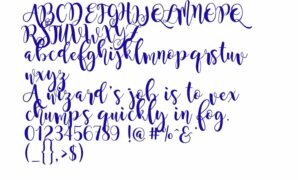 ABCDEFGHIJKLMNOPQ
RSTUVWXYZ
abcdefghijklmnopqrstuv
wxyz
A wizard's job is to vex
chumps quickly in fog.
0123456789 !@#%^&
(_{},>$)